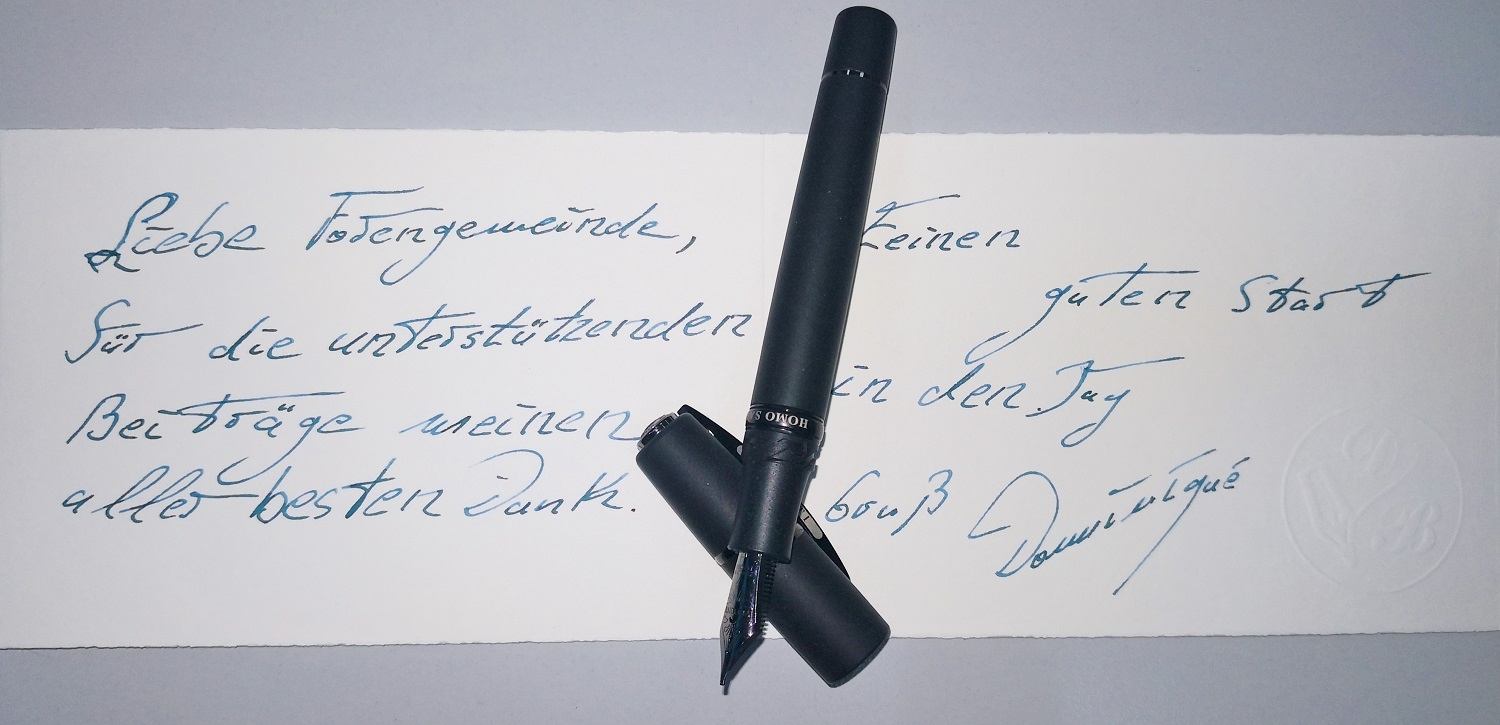 Liebe Forengemeinde,
für die unterstützenden
Beiträge meinen
allerbesten Dank.
guten Start
in den Tag
Gruß Dominiqué
HOMO S